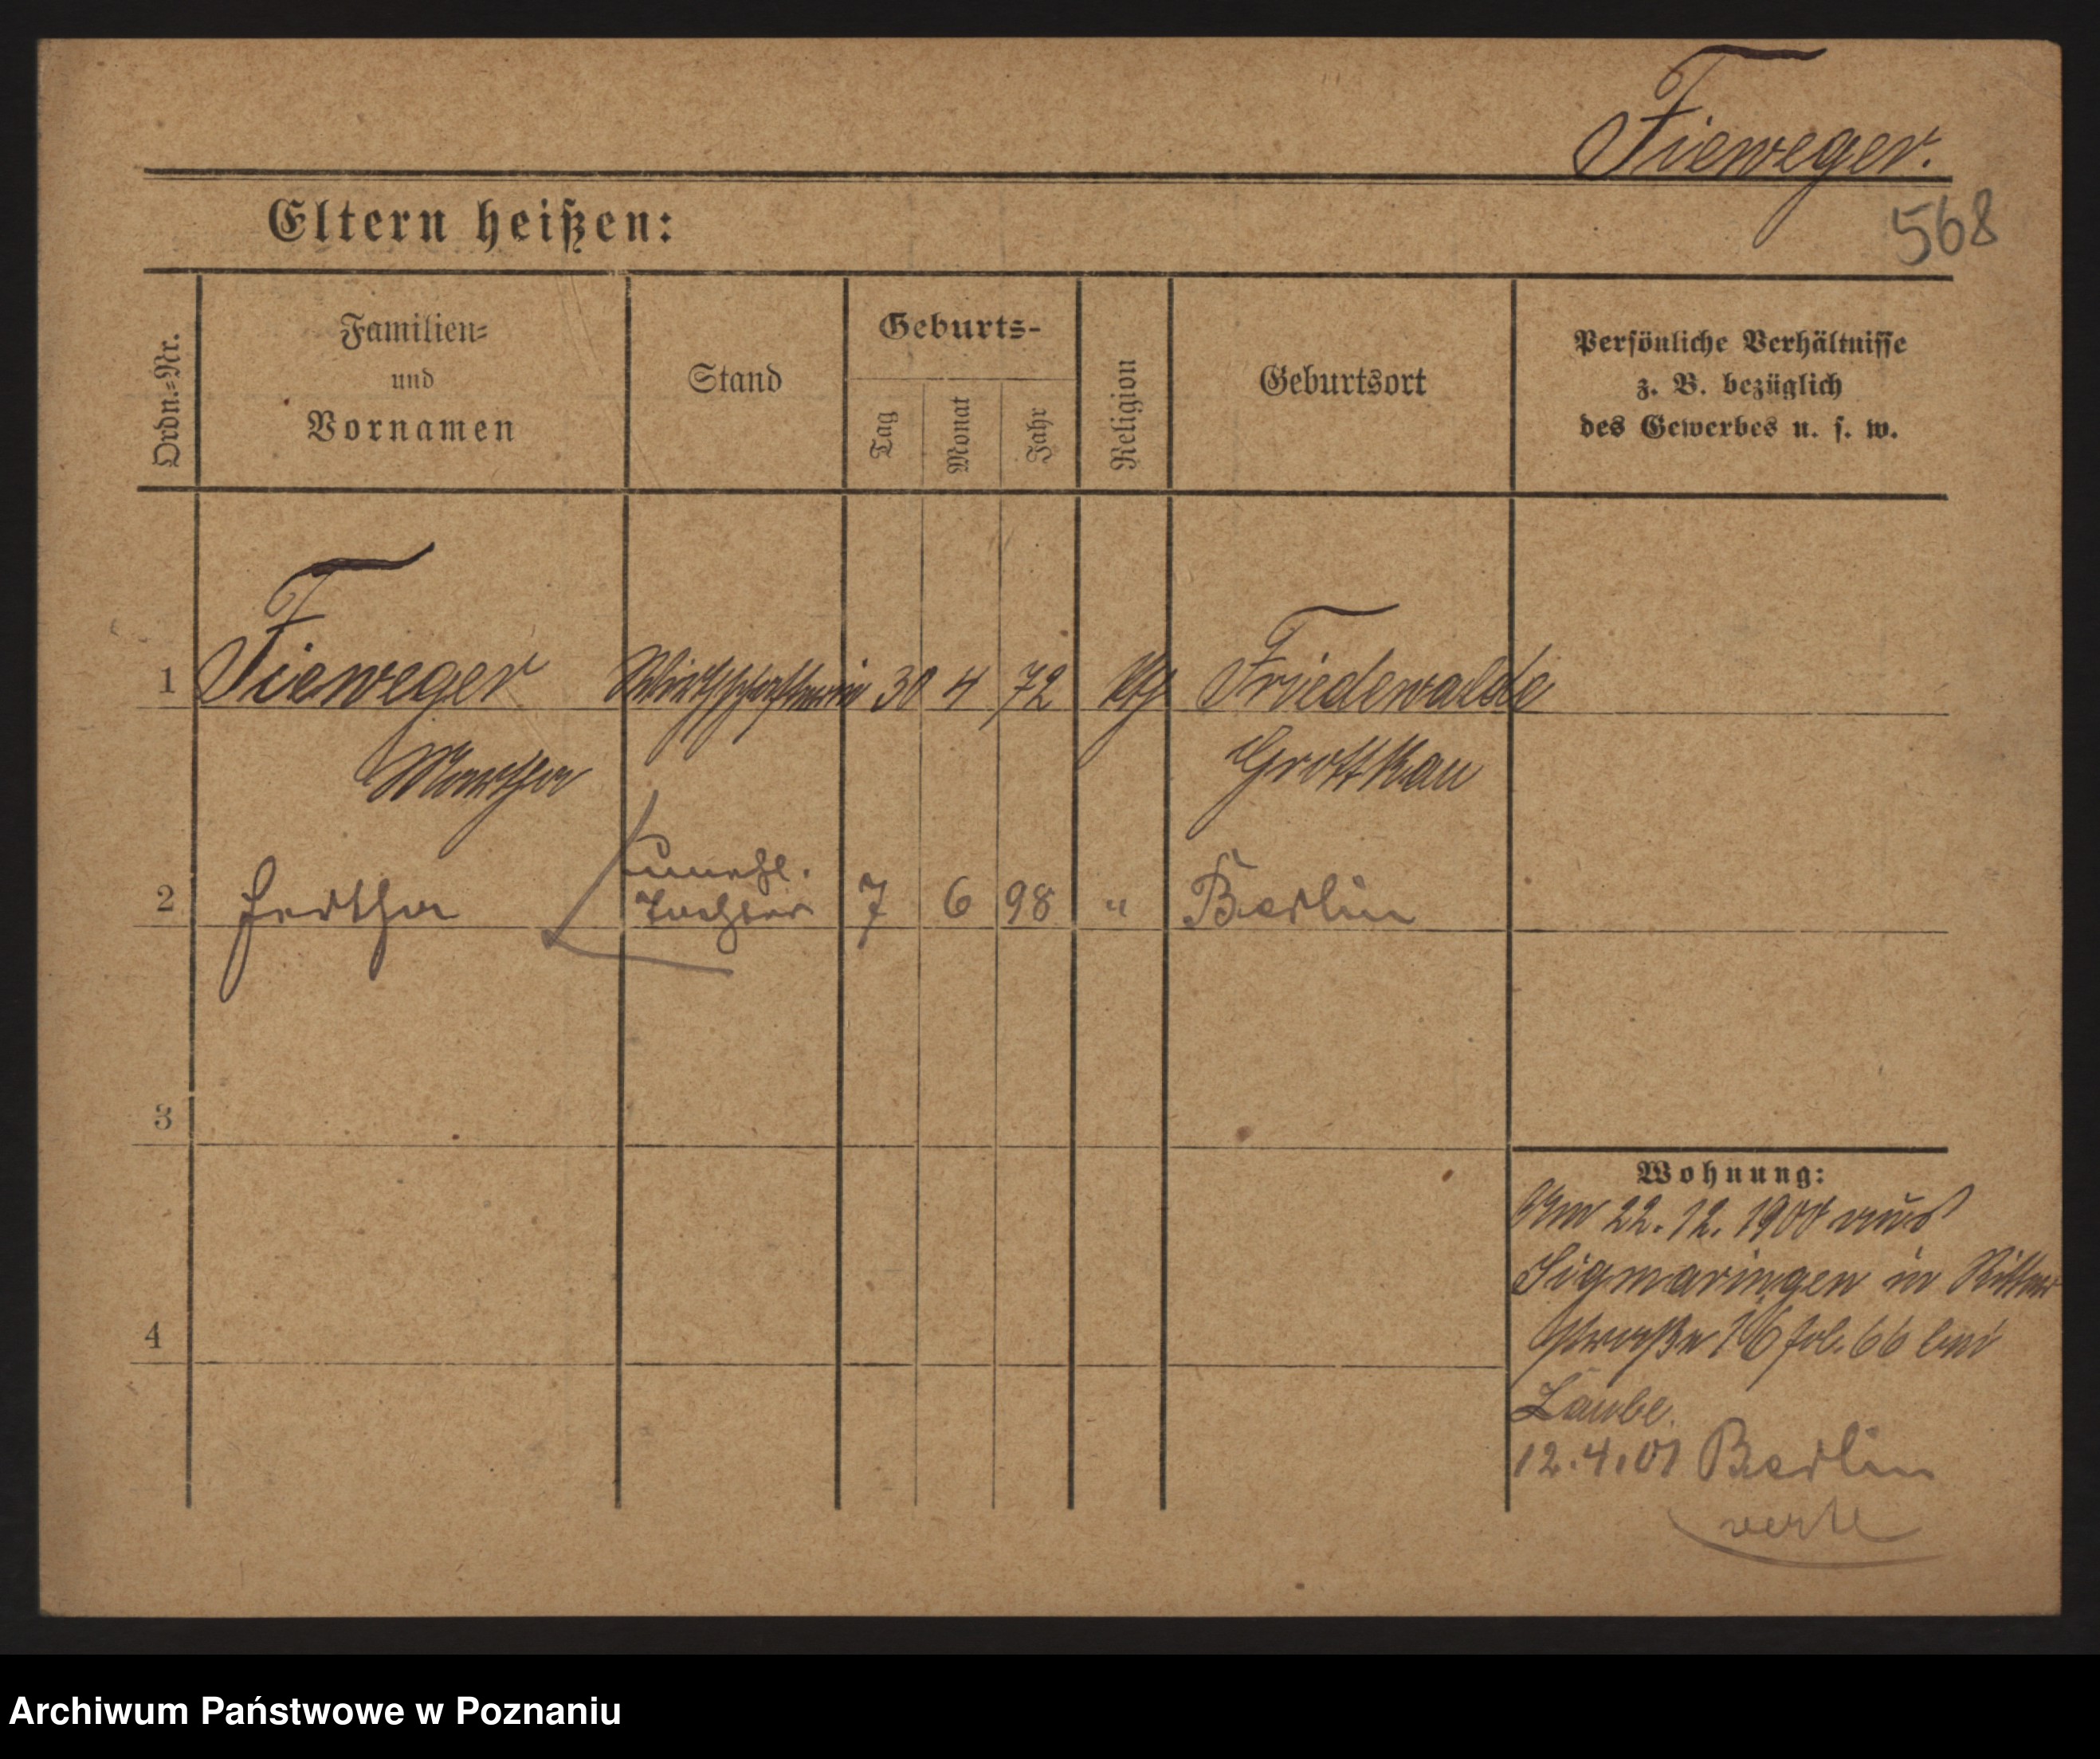 Fieweger.
568
Eltern heißen:
Ordn.=Nr.
Familien=
und
Vornamen
Stand
Geburts-
Tag
Monat
Jahr
Religion
Geburtsort
Persönliche Verhältnisse
z. B. bezüglich
des Gewerbes u. s. w.
1 Fieweger Wirthschafterin 30 4 72 kth Friedewalde
Martha Grottkau
unehl.
2 Hertha Tochter 7 6 98 " Berlin
3
4
Wohnung:
Am 22. 12. 1900 aus
Sigmaringen in Ritter
straße 16 fol. 66 bei
Laube.
12.4.01 Berlin
verte
Archiwum Państwowe w Poznaniu